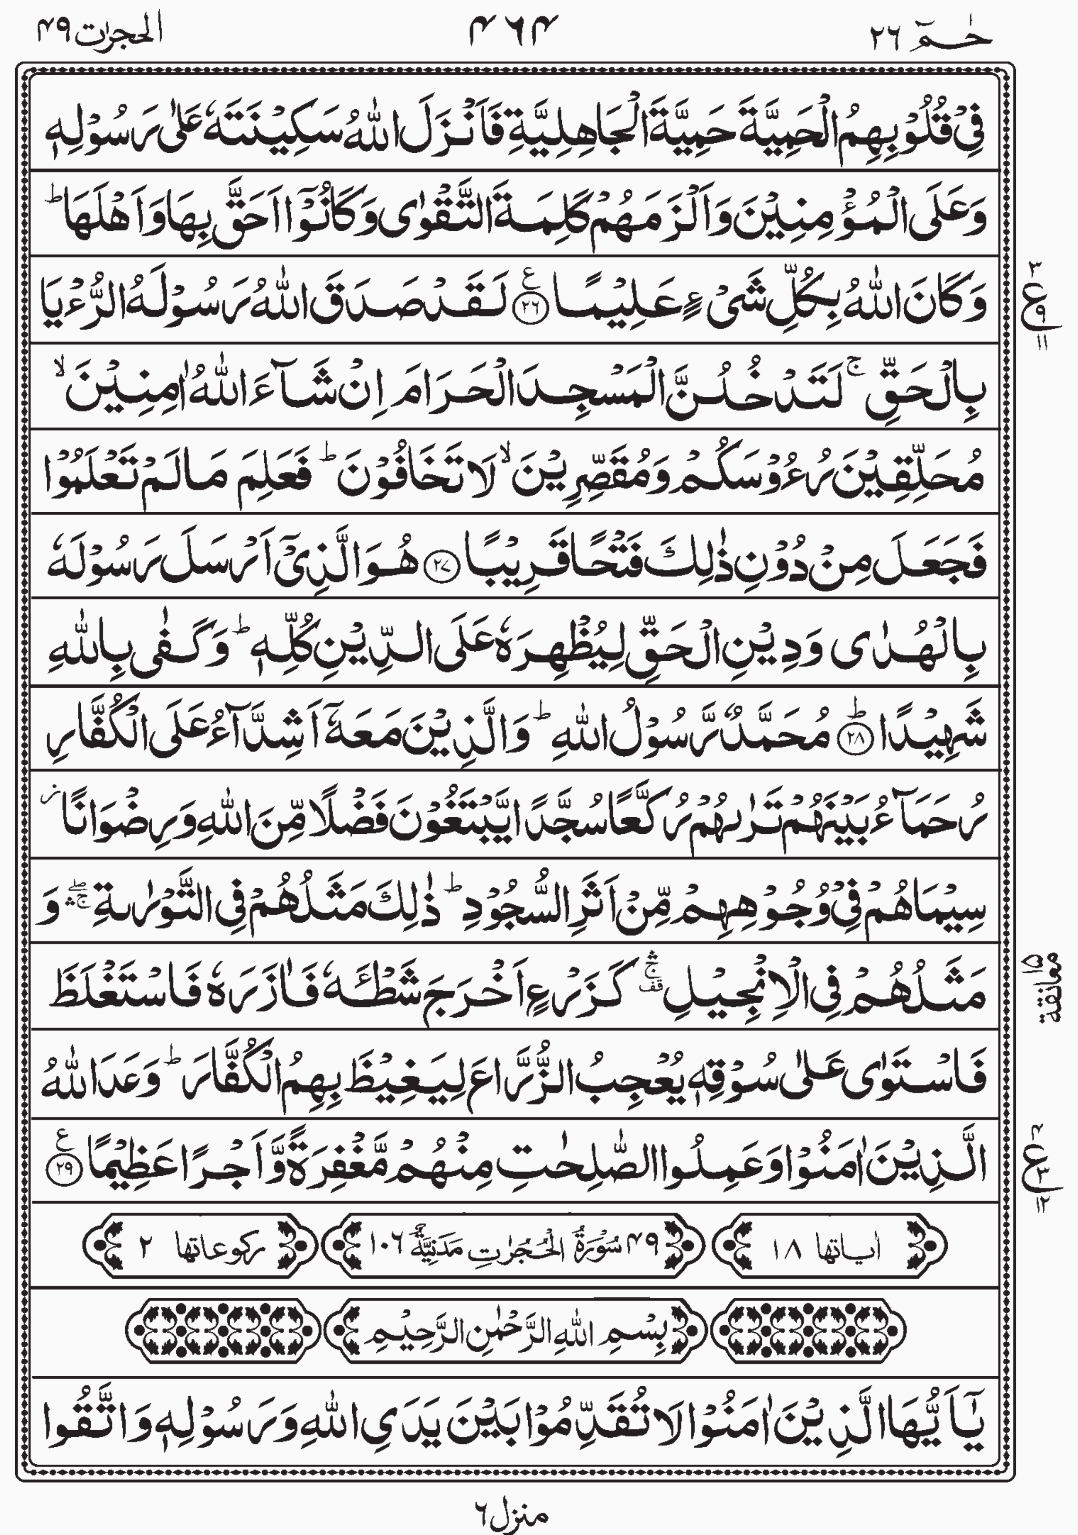 الحجرات ٤٩ ٤٦٤ حٰمٓ ٢٦
فِیْ قُلُوْبِهِمُ الْحَمِیَّةَ حَمِیَّةَ الْجَاهِلِیَّةِ فَاَنْزَلَ اللّٰهُ سَكِیْنَتَهٗ عَلٰی رَسُوْلِهٖ
وَعَلَی الْمُؤْمِنِیْنَ وَاَلْزَمَهُمْ كَلِمَةَ التَّقْوٰی وَكَانُوْۤا اَحَقَّ بِهَا وَاَهْلَهَا ؕ
وَكَانَ اللّٰهُ بِكُلِّ شَیْءٍ عَلِیْمًا ﴿٢٦﴾ ع لَقَدْ صَدَقَ اللّٰهُ رَسُوْلَهُ الرُّءْیَا
٣ ع ٩ ١١
بِالْحَقِّ ۚ لَتَدْخُلُنَّ الْمَسْجِدَ الْحَرَامَ اِنْ شَآءَ اللّٰهُ اٰمِنِیْنَ ۙ
مُحَلِّقِیْنَ رُءُوْسَكُمْ وَمُقَصِّرِیْنَ ۙ لَا تَخَافُوْنَ ؕ فَعَلِمَ مَا لَمْ تَعْلَمُوْا
فَجَعَلَ مِنْ دُوْنِ ذٰلِكَ فَتْحًا قَرِیْبًا ﴿٢٧﴾ هُوَ الَّذِیْۤ اَرْسَلَ رَسُوْلَهٗ
بِالْهُدٰی وَدِیْنِ الْحَقِّ لِیُظْهِرَهٗ عَلَی الدِّیْنِ كُلِّهٖ ؕ وَكَفٰی بِاللّٰهِ
شَهِیْدًا ﴿٢٨﴾ ؕ مُحَمَّدٌ رَّسُوْلُ اللّٰهِ ؕ وَالَّذِیْنَ مَعَهٗۤ اَشِدَّآءُ عَلَی الْكُفَّارِ
رُحَمَآءُ بَیْنَهُمْ تَرٰىهُمْ رُكَّعًا سُجَّدًا یَّبْتَغُوْنَ فَضْلًا مِّنَ اللّٰهِ وَرِضْوَانًا ز
سِیْمَاهُمْ فِیْ وُجُوْهِهِمْ مِّنْ اَثَرِ السُّجُوْدِ ؕ ذٰلِكَ مَثَلُهُمْ فِی التَّوْرٰىةِ ۛۖۚ وَ
مَثَلُهُمْ فِی الْاِنْجِیْلِ ۛۚ قف كَزَرْعٍ اَخْرَجَ شَطْـَٔهٗ فَاٰزَرَهٗ فَاسْتَغْلَظَ
معانقة ١٥
فَاسْتَوٰی عَلٰی سُوْقِهٖ یُعْجِبُ الزُّرَّاعَ لِیَغِیْظَ بِهِمُ الْكُفَّارَ ؕ وَعَدَ اللّٰهُ
الَّذِیْنَ اٰمَنُوْا وَعَمِلُوا الصّٰلِحٰتِ مِنْهُمْ مَّغْفِرَةً وَّاَجْرًا عَظِیْمًا ﴿٢٩﴾ ع
٤ ع ٣ ١٢
اٰیاتها ١٨ ٤٩ سُوْرَةُ الْحُجُرٰتِ مَدَنِیَّةٌ ١٠٦ ركوعاتها ٢
بِسْمِ اللّٰهِ الرَّحْمٰنِ الرَّحِیْمِ
یٰۤاَیُّهَا الَّذِیْنَ اٰمَنُوْا لَا تُقَدِّمُوْا بَیْنَ یَدَیِ اللّٰهِ وَرَسُوْلِهٖ وَاتَّقُوا
منزل ٦